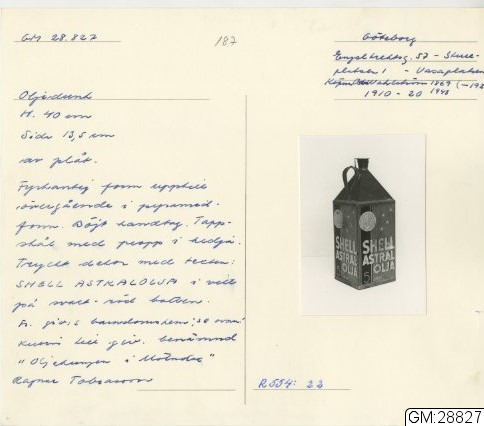 GM 28.827
187
Göteborg
Engelbrektsg. 57 - Sture-
platsen 1 - Vasaplatsen
1869 (-192
1910 - 20 1943
Oljedunk
H. 40 cm
Sida 13,5 cm
av plåt.
Fyrkantig form upptill
övergående i pyramid-
form. Böjt handtag. Tapp-
hål med propp i kedja.
Tryckt dekor med texten:
SHELL ASTRALOLJA i vitt
på svart-röd botten.
Fr. giv:s barndomshem; se ovan!
till giv. benämnd
"Oljekungen i Mölndal"
Ragnar
SHELL
ASTRAL
OLJA
SHELL
ASTRAL
OLJA
5
R554: 22
GM:28827